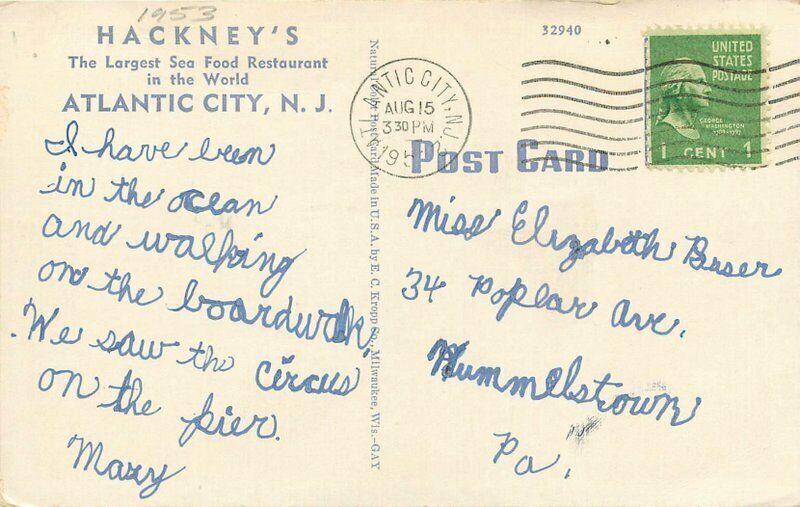 1953
HACKNEY'S
The Largest Sea Food Restaurant
in the World
ATLANTIC CITY, N. J.
I have been
in the ocean
and walking
on the boardwalk.
We saw the circus
on the pier.
Mary
Natural Color Post Card Made in U.S.A. by E. C. Kropp Co., Milwaukee, Wis.—GAY
32940
ATLANTIC CITY, N.J.
AUG 15
3 30 PM
1953
UNITED
STATES
POSTAGE
GEORGE
WASHINGTON
1789-1797
1 CENT 1
POST CARD
Miss Elizabeth Baser
34 Poplar Ave.
Hummelstown
Pa.